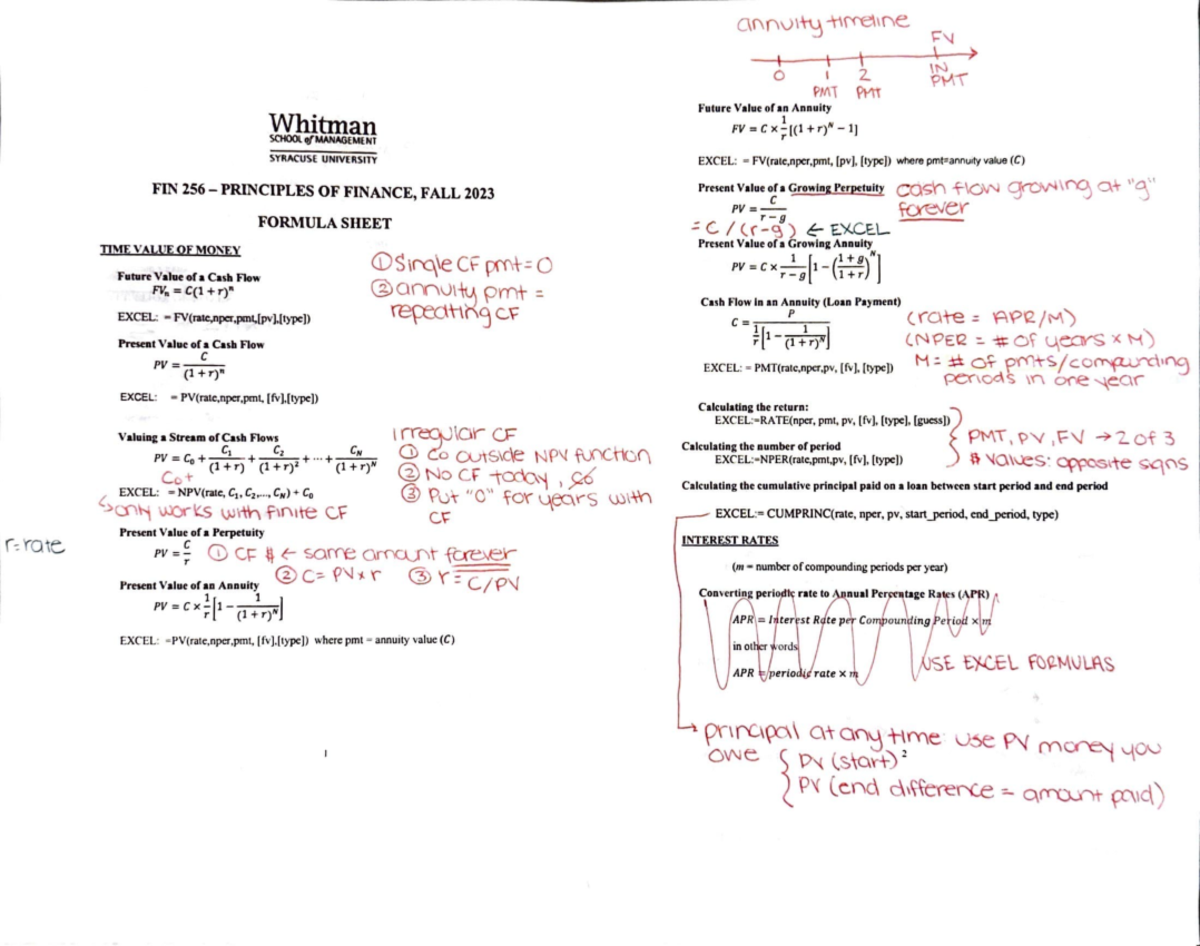 Whitman
SCHOOL of MANAGEMENT
SYRACUSE UNIVERSITY
FIN 256 – PRINCIPLES OF FINANCE, FALL 2023
FORMULA SHEET
TIME VALUE OF MONEY
① Single CF pmt = 0
② annuity pmt =
repeating CF
Future Value of a Cash Flow
FVₙ = C(1 + r)ⁿ
EXCEL: = FV(rate,nper,pmt,[pv],[type])
Present Value of a Cash Flow
PV = C / (1 + r)ⁿ
EXCEL: = PV(rate,nper,pmt, [fv],[type])
Valuing a Stream of Cash Flows
PV = C₀ + C₁ / (1 + r) + C₂ / (1 + r)² + ⋯ + C_N / (1 + r)^N
C₀+
EXCEL: = NPV(rate, C₁, C₂,..., C_N) + C₀
↳ only works with finite CF
irregular CF
① C₀ outside NPV function
② No CF today,
③ Put "0" for years with
CF
r = rate
Present Value of a Perpetuity
PV = C / r
① CF $ ← same amount forever
② C = PV x r ③ r = C/PV
Present Value of an Annuity
PV = C × 1/r [1 − 1 / (1 + r)^N]
EXCEL: =PV(rate,nper,pmt, [fv],[type]) where pmt = annuity value (C)
1
annuity timeline
FV
0 1 2 IN
PMT PMT PMT
Future Value of an Annuity
FV = C × 1/r [(1 + r)^N − 1]
EXCEL: = FV(rate,nper,pmt, [pv], [type]) where pmt=annuity value (C)
Present Value of a Growing Perpetuity cash flow growing at "g"
forever
PV = C / r − g
= C / (r-g) ← EXCEL
Present Value of a Growing Annuity
PV = C × 1 / r − g [1 − (1 + g / 1 + r)^N]
Cash Flow in an Annuity (Loan Payment)
C = P / 1/r [1 − 1 / (1 + r)^N]
(rate = APR/M)
(NPER = # of years x M)
M = # of pmts/compounding
periods in one year
EXCEL: = PMT(rate,nper,pv, [fv], [type])
Calculating the return:
EXCEL:=RATE(nper, pmt, pv, [fv], [type], [guess])
Calculating the number of period
EXCEL:=NPER(rate,pmt,pv, [fv], [type])
PMT, PV, FV → 2 of 3
$ values: opposite signs
Calculating the cumulative principal paid on a loan between start period and end period
EXCEL:= CUMPRINC(rate, nper, pv, start_period, end_period, type)
INTEREST RATES
(m = number of compounding periods per year)
Converting periodic rate to Annual Percentage Rates (APR)
APR = Interest Rate per Compounding Period × m
in other words
APR = periodic rate × m
USE EXCEL FORMULAS
→ principal at any time: use PV money you
owe { PV (start)
2
PV (end difference = amount paid)